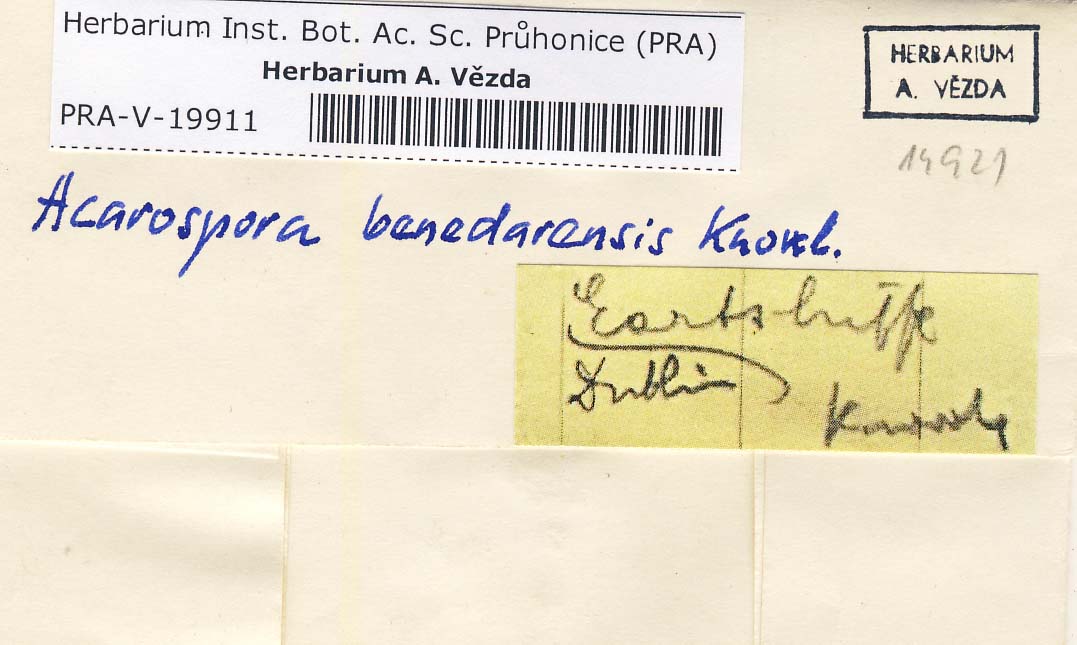 Herbarium Inst. Bot. Ac. Sc. Průhonice (PRA)
Herbarium A. Vězda
PRA-V-19911
HERBARIUM
A. VĚZDA
14921
Acarospora benedarensis Knowl.
Dublin